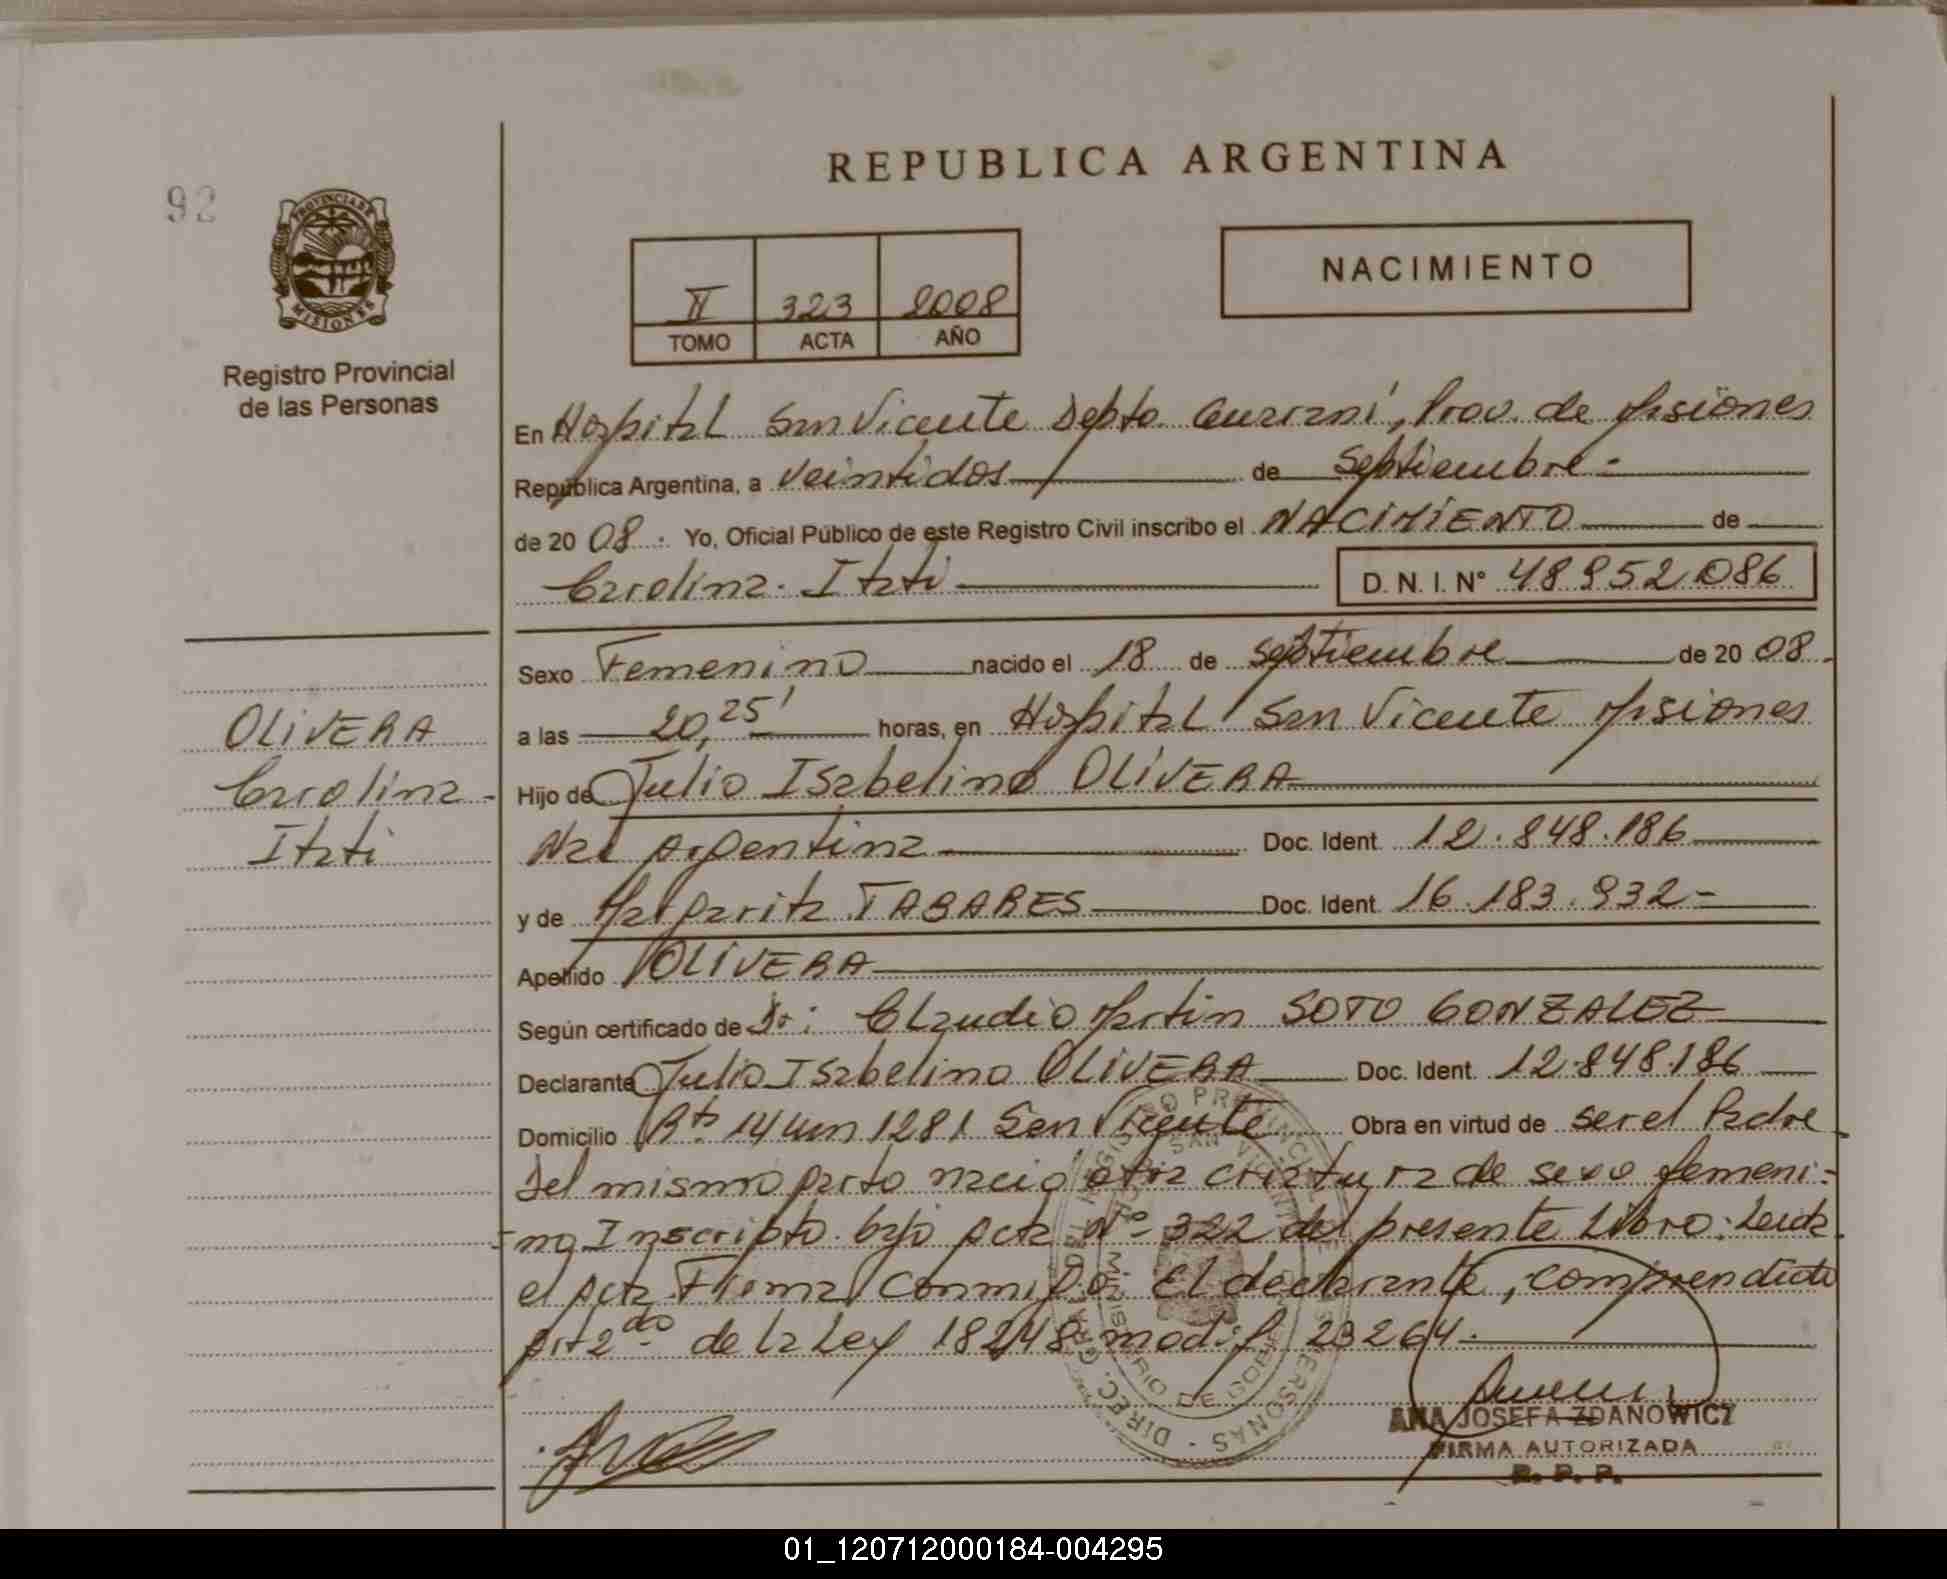 REPUBLICA ARGENTINA
92
PROVINCIA DE MISIONES
Registro Provincial
de las Personas
II 323 2008
TOMO ACTA AÑO
NACIMIENTO
En Hospital San Vicente Depto. Guarani, Prov. de Misiones
Republica Argentina, a veintidos de Septiembre -
de 20 08. Yo, Oficial Público de este Registro Civil inscribo el NACIMIENTO de
Carolina Itati D. N. I. N° 48952086
Sexo Femenino nacido el 18 de Septiembre de 20 08.
a las 20,25' horas, en Hospital San Vicente Misiones
Hijo de Julio Isabelino OLIVERA
Nac Argentina Doc. Ident. 12.848.186
y de Margarita TABARES Doc. Ident. 16.183.932-
Apellido OLIVERA
Según certificado de Dr: Claudio Martin SOTO GONZALEZ
Declarante Julio Isabelino OLIVERA Doc. Ident. 12.848.186
Domicilio Rta 14 Km 1281 San Vicente Obra en virtud de ser el Padre
Del mismo parto nacio otra criatura de sexo femeni-
-no Inscripto bajo Acta N° 322 del presente Libro: Leida
el Acta Firma Conmigo El declarante, comprendido
Art 2do de la Ley 18248 modif 23264.
OLIVERA
Carolina -
Itati
ANA JOSEFA ZDANOWICZ
FIRMA AUTORIZADA
R. P. P.
01_120712000184-004295